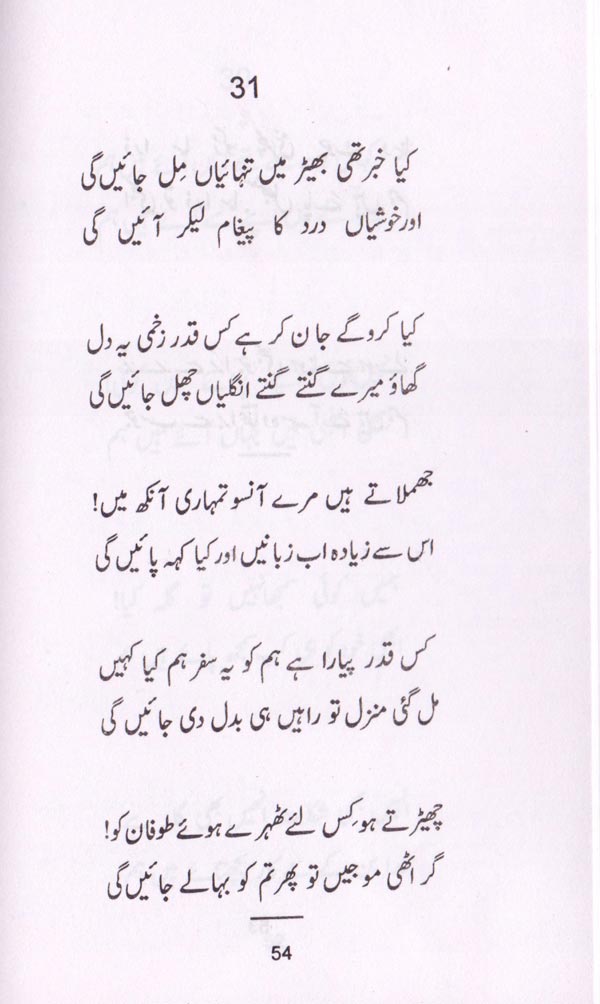 31
کیا خبر تھی بھیڑ میں تنہائیاں مِل جائیں گی
اور خوشیاں درد کا پیغام لیکر آئیں گی
کیا کرو گے جان کر ہے کس قدر زخمی یہ دل
گھاؤ میرے گنتے گنتے انگلیاں چھل جائیں گی
جھملاتے ہیں مرے آنسو تمہاری آنکھ میں!
اس سے زیادہ اب زبانیں اور کیا کہہ پائیں گی
کس قدر پیارا ہے ہم کو یہ سفر ہم کیا کہیں
مل گئی منزل تو راہیں ہی بدل دی جائیں گی
چھیڑتے ہو کِس لئے ٹھہرے ہوئے طوفان کو!
گر اٹھی موجیں تو پھر تم کو بہا لے جائیں گی
54